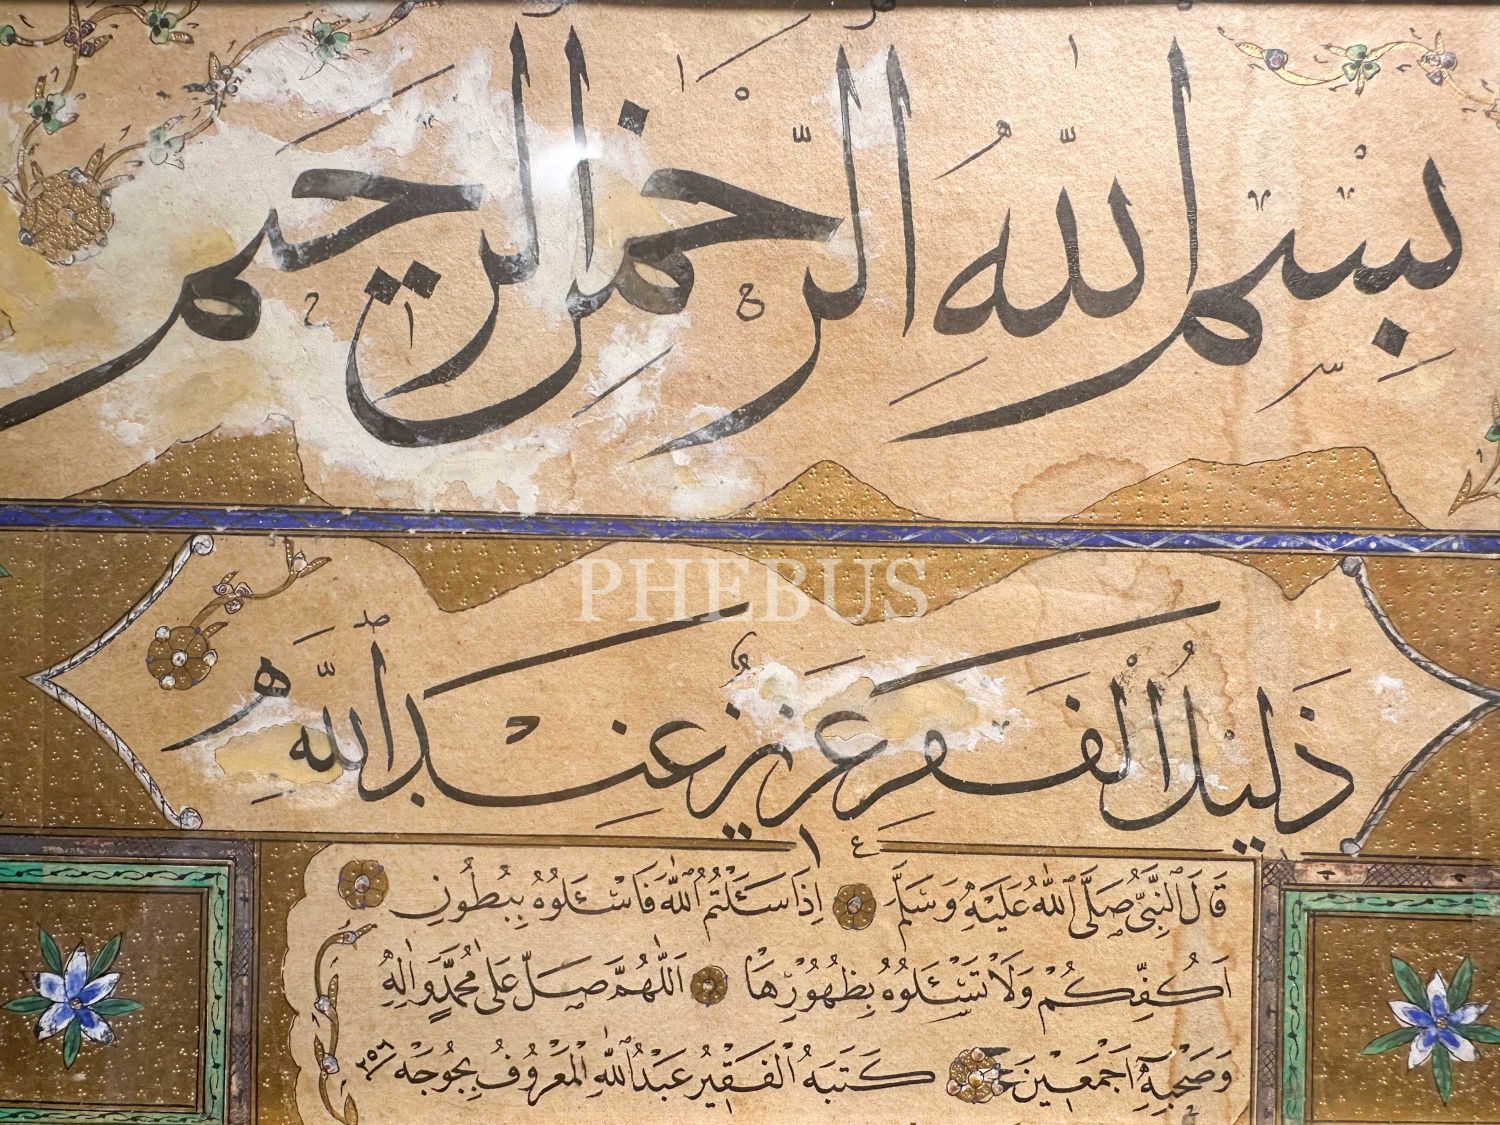 بِسْمِ اللّٰهِ الرَّحْمٰنِ الرَّحِيمِ
PHEBUS
ذَلِيلُ الْفَقِرِ عَزِيزٌ عِنْدَ اللّٰهِ
قَالَ النَّبِيُّ صَلَّى اللّٰهُ عَلَيْهِ وَسَلَّمَ اِذَا سَئَلْتُمُ اللّٰهَ فَاسْئَلُوهُ بِبُطُونِ
اَكُفِّكُمْ وَلَا تَسْئَلُوهُ بِظُهُورِهَا اَللّٰهُمَّ صَلِّ عَلٰى مُحَمَّدٍ وَاٰلِهِ
وَصَحْبِهِ اَجْمَعِينَ كَتَبَهُ الْفَقِيرُ عَبْدُ اللّٰهِ الْمَعْرُوفُ بِجُوجَهْ